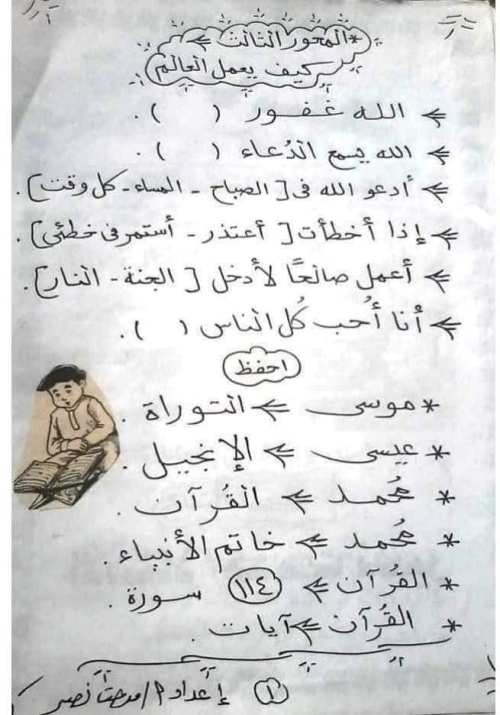 * المحور الثالث
كيف يعمل العالم
الله غفور ( ) .
الله يسمع الدُعاء ( ) .
أدعو الله فى [ الصباح - المساء - كل وقت ] .
إذا أخطأت [ أعتذر - أستمر فى خطئى ] .
أعمل صالحًا لأدخل [ الجنة - النار ] .
أنا أُحب كُل الناس ( ) .
احفظ
* موسى ← التوراة .
* عيسى ← الإنجيل .
* مُحمد ← القُرآن .
* مُحمد ← خاتم الأنبياء .
* القُرآن ← ١١٤ سورة .
* القُرآن ← آيات .
١ إعداد م / مدحت نصر